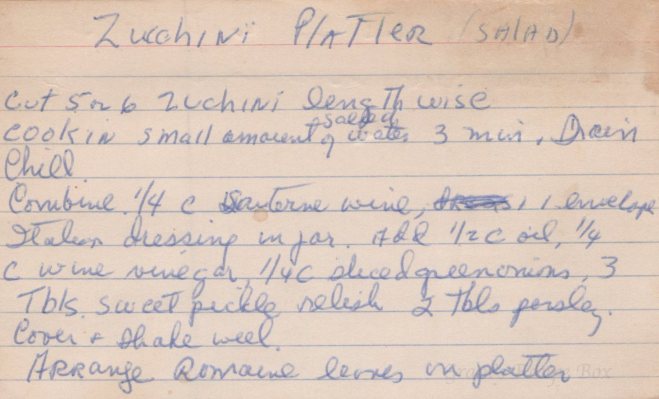 Zucchini Platter (Salad)
Cut 5 or 6 Zuchini length wise
cook in small amount of salted water 3 min, Drain
Chill.
Combine 1/4 c Sauterne wine, 1 envelope
Italian dressing in jar. Add 1/2 c oil, 1/4
c wine vinegar, 1/4 c sliced green onions, 3
Tbls. sweet pickle relish 2 Tbls parsley.
Cover & shake well.
Arrange Romaine leaves on platter
Box